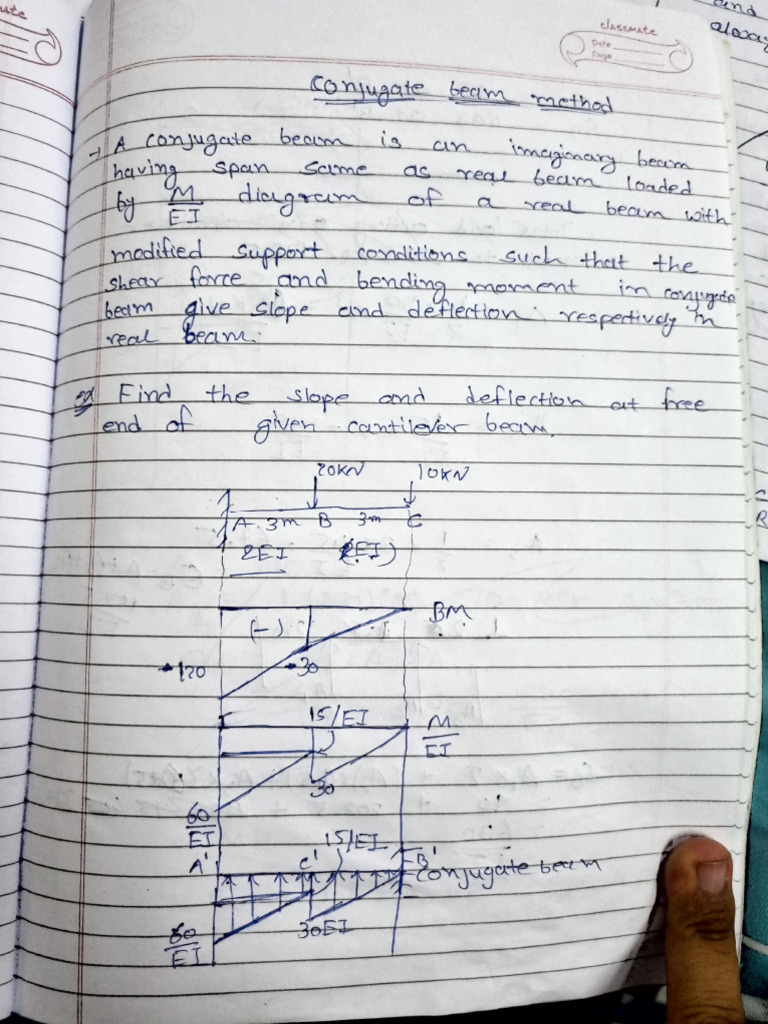 ute
and
alway
classmate
Date
Page
Conjugate beam method
→ A conjugate beam is an imaginary beam
having span same as real beam loaded
by M/EI diagram of a real beam with
modified support conditions such that the
shear force and bending moment in conjugate
beam give slope and deflection respectively in
real beam.
ex Find the slope and deflection at free
end of given cantilever beam.
20KN 10KN
A 3m B 3m C
2EI (EI)
(-) BM
120 30
15/EI M/EI
30
60/EI
15/EI
A' C' B' Conjugate beam
60/EI 30EI